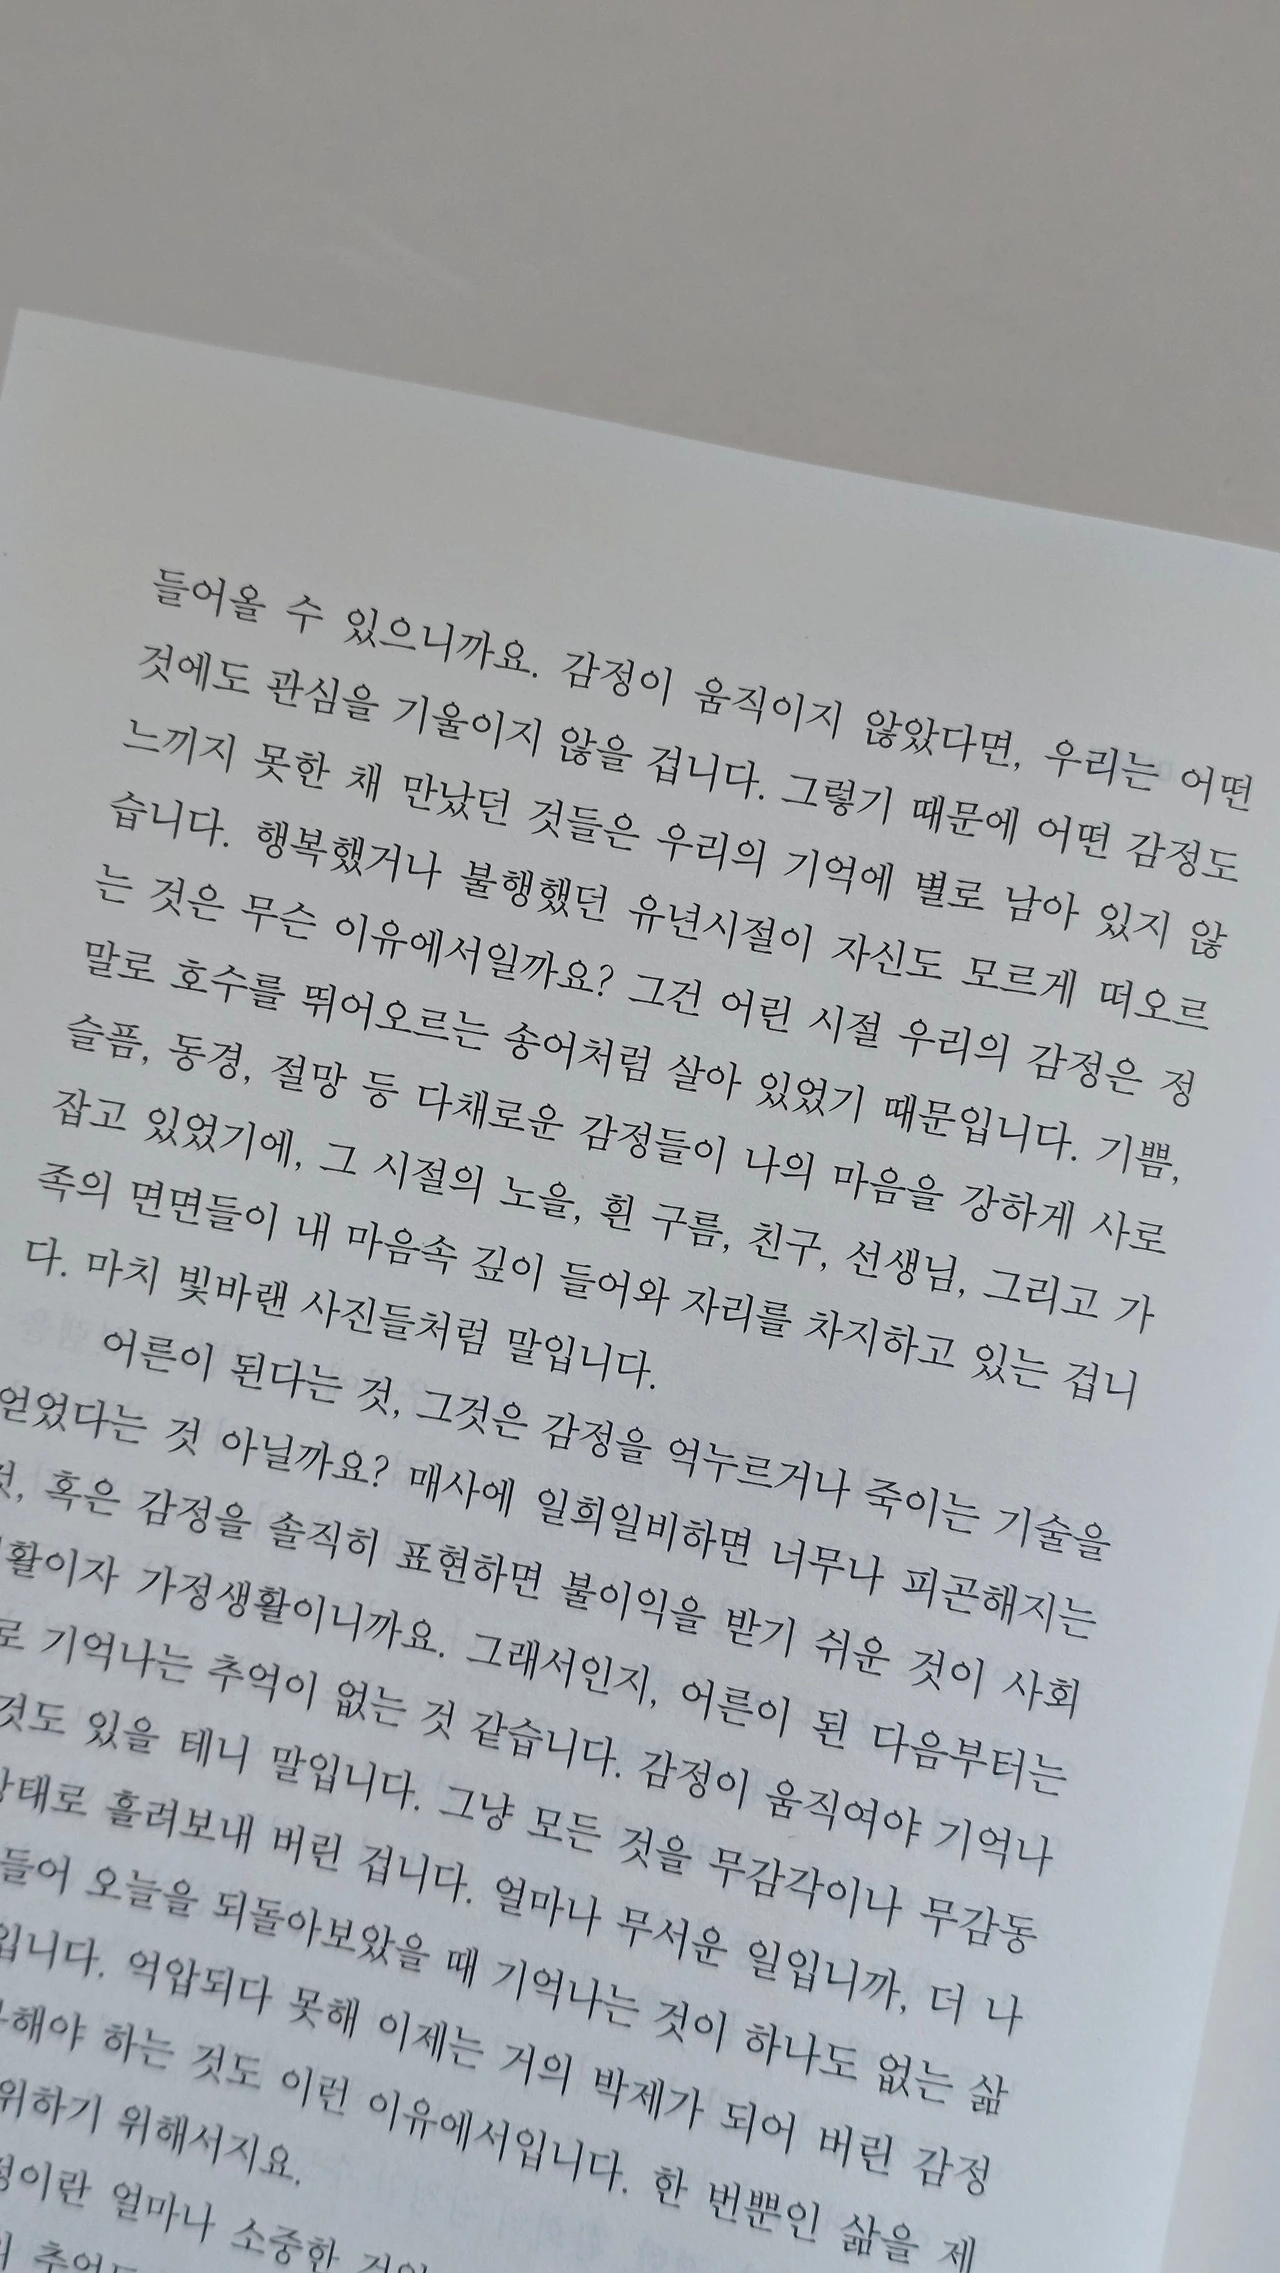 들어올 수 있으니까요. 감정이 움직이지 않았다면, 우리는 어떤
것에도 관심을 기울이지 않을 겁니다. 그렇기 때문에 어떤 감정도
느끼지 못한 채 만났던 것들은 우리의 기억에 별로 남아 있지 않
습니다. 행복했거나 불행했던 유년시절이 자신도 모르게 떠오르
는 것은 무슨 이유에서일까요? 그건 어린 시절 우리의 감정은 정
말로 호수를 뛰어오르는 송어처럼 살아 있었기 때문입니다. 기쁨,
슬픔, 동경, 절망 등 다채로운 감정들이 나의 마음을 강하게 사로
잡고 있었기에, 그 시절의 노을, 흰 구름, 친구, 선생님, 그리고 가
족의 면면들이 내 마음속 깊이 들어와 자리를 차지하고 있는 겁니
다. 마치 빛바랜 사진들처럼 말입니다.
어른이 된다는 것, 그것은 감정을 억누르거나 죽이는 기술을
얻었다는 것 아닐까요? 매사에 일희일비하면 너무나 피곤해지는
것, 혹은 감정을 솔직히 표현하면 불이익을 받기 쉬운 것이 사회
활이자 가정생활이니까요. 그래서인지, 어른이 된 다음부터는
로 기억나는 추억이 없는 것 같습니다. 감정이 움직여야 기억나
것도 있을 테니 말입니다. 그냥 모든 것을 무감각이나 무감동
상태로 흘려보내 버린 겁니다. 얼마나 무서운 일입니까, 더 나
들어 오늘을 되돌아보았을 때 기억나는 것이 하나도 없는 삶
입니다. 억압되다 못해 이제는 거의 박제가 되어 버린 감정
해야 하는 것도 이런 이유에서입니다. 한 번뿐인 삶을 제
위하기 위해서지요.
정이란 얼마나 소중한